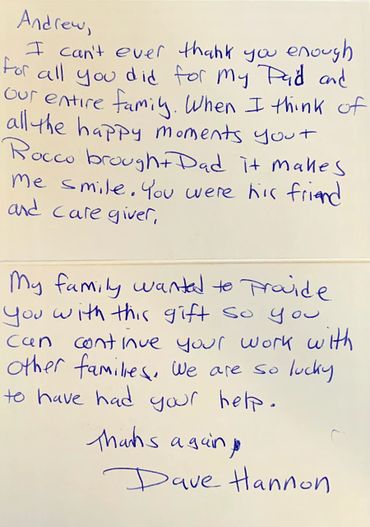 Andrew,
I can't ever thank you enough
for all you did for my Dad and
our entire family. When I think of
all the happy moments you +
Rocco brought Dad it makes
me smile. You were his friend
and care giver.
My family wanted to provide
you with this gift so you
can continue your work with
other families. We are so lucky
to have had your help.
Thanks again,
Dave Hannon